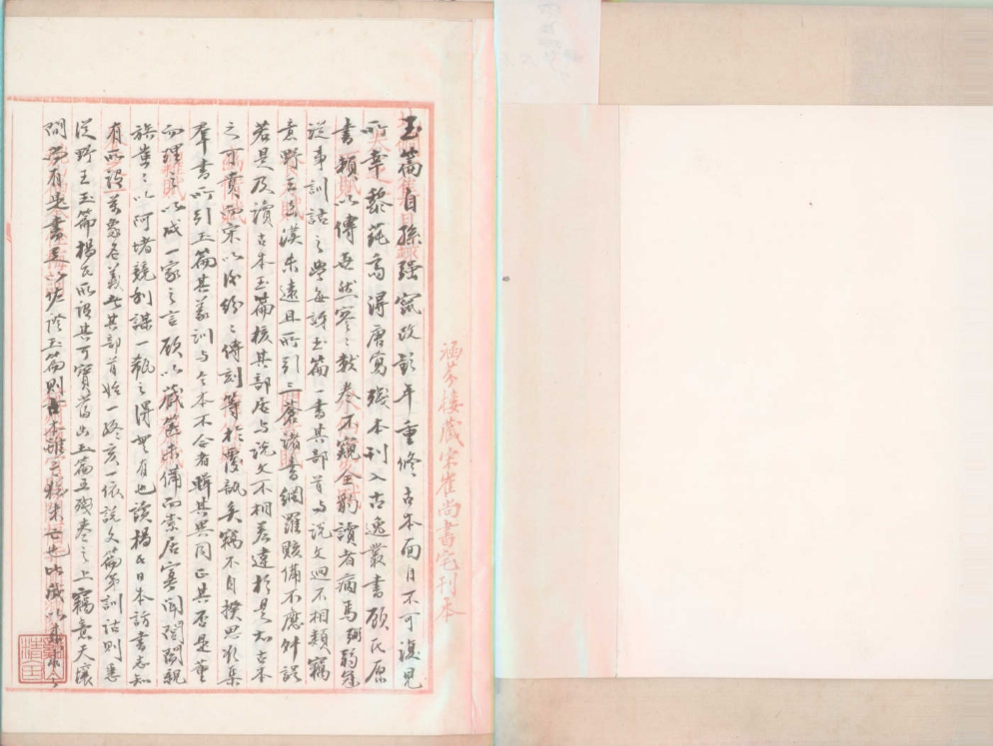 玉篇自孫强竄改彭年重修古本面目不可復見
所幸黎蒓齋得唐寫殘本刊入古逸叢書顧氏原
書賴以傳世然寥寥數卷不窺全豹讀者病焉弱冠
從事訓詁之學每訝玉篇一書其部首与說文迥不相類竊
意野王去漢未遠且所引三蒼諸書網羅賅備不應舛誤
若是及讀古本玉篇核其部居与說文不相差違於是知古本
之可貴而宋以後紛紛傳刻等於覆瓿矣竊不自揆思欲集
羣書所引玉篇其義訓与今本不合者輯其異同正其否是董
而理之以成一家之言顧以藏籍未備而索居寡聞閭閻親
族輩輩以阿堵競利謀一瓻之得無有也讀楊氏日本訪書志知
有所謂萬象名義者其部首始一終亥一依說文篇第訓詁則悉
從野王玉篇楊氏所謂其可寶當出玉篇五殘卷之上竊意天壤
間尚有是書足以佐證玉篇則古本雖亡猶未亡也
涵芬樓藏宋崔尚書宅刊本